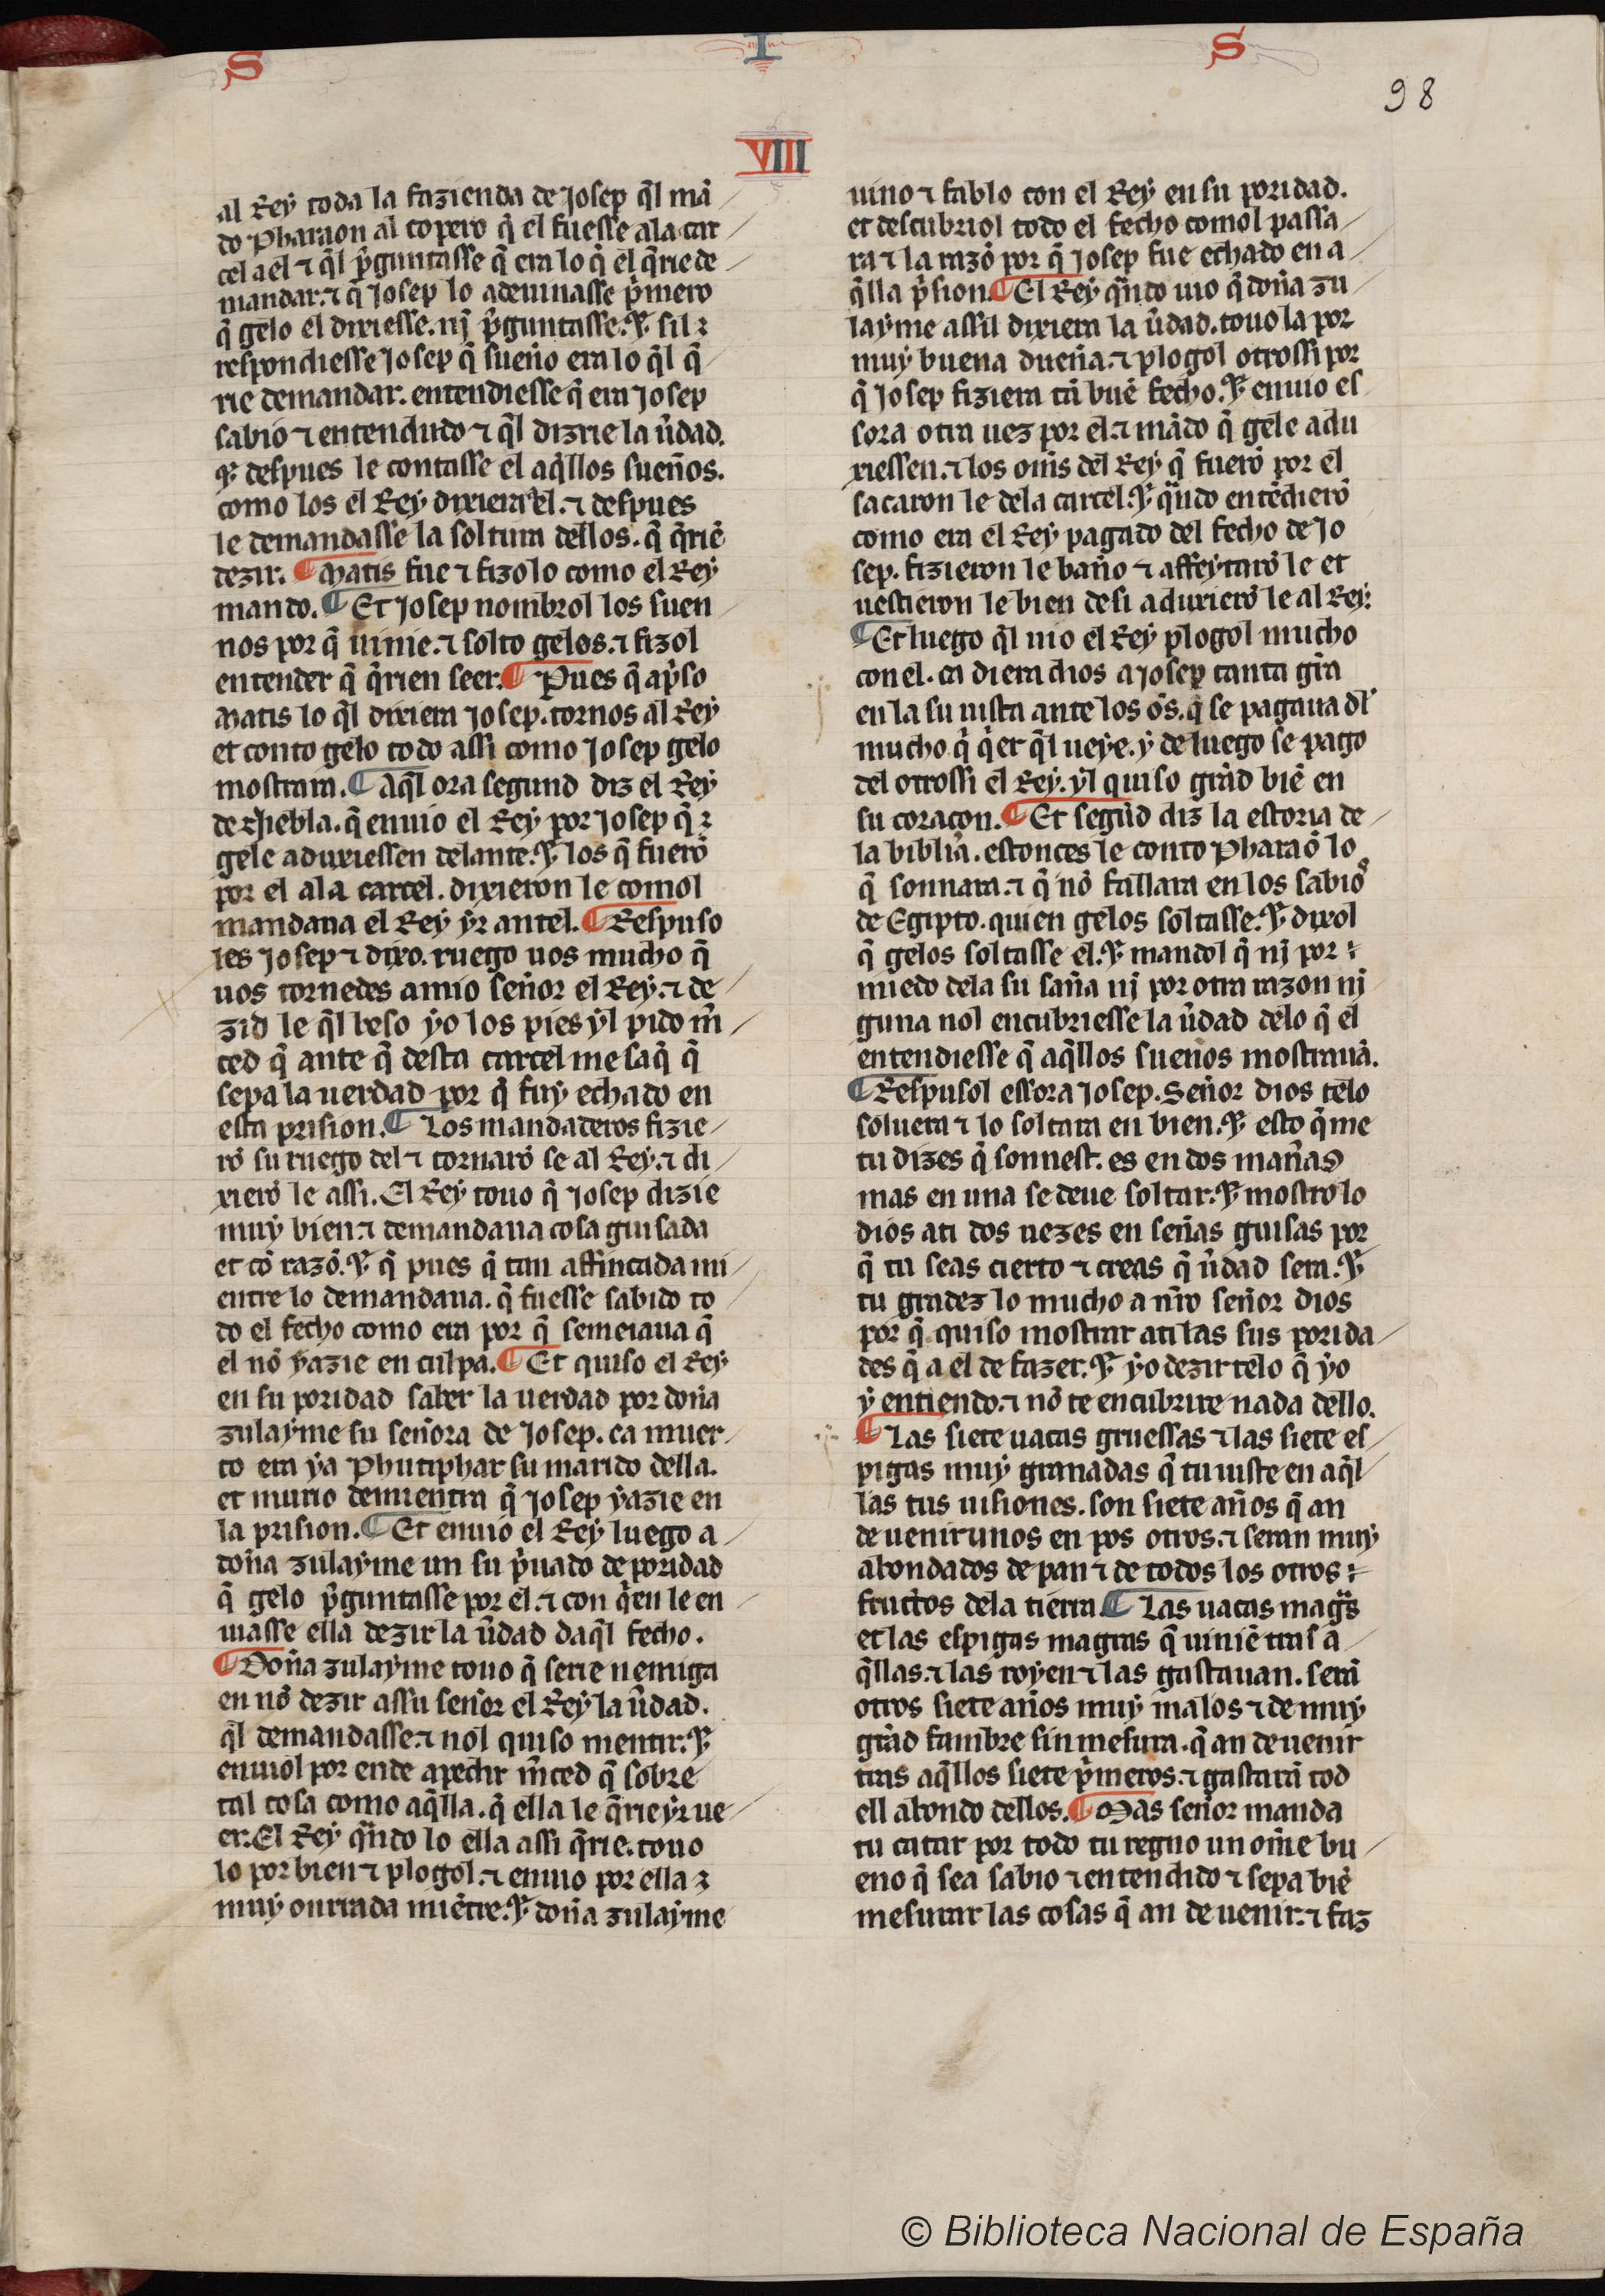 S I S
98
VIII
al Rey toda la fazienda de Josep q̃l mã
do Pharaon al copero q̃ el fuesse ala car
cel a el ⁊ q̃l p̃guntasse q̃ era lo q̃ el q̃rie de
mandar. ⁊ q̃ Josep lo adeuinasse p̃mero
q̃ gelo el dixiesse. nj p̃guntasse. ⁊ sil
respondiesse Josep q̃ sueño era lo q̃l q̃
rie demandar. entendiesse q̃ era Josep
sabio ⁊ entendudo ⁊ q̃l dizrie la ủdad.
⁊ despues le contasse el aq̃llos sueños.
como los el Rey dixiera el. ⁊ despues
le demandasse la soltura dellos. q̃ q̃riẽ
dezir. ¶ Matis fue ⁊ fizolo como el Rey
mando. ¶ Et Josep nombrol los suen
nos por q̃ uinie. ⁊ solto gelos. ⁊ fizol
entender q̃ q̃rien seer. ¶ Pues q̃ ap̃so
Matis lo q̃l dixiera Josep. tornos al Rey
et conto gelo todo assi como Josep gelo
mostrara. ¶ Aq̃l ora segund diz el Rey
de Niebla. q̃ enuio el Rey por Josep q̃
gele aduxiessen delante. ⁊ los q̃ fuerõ
por el ala carcel. dixieron le comol
mandaua el Rey yr antel. ¶ Respuso
les Josep ⁊ dixo. ruego uos mucho q̃
uos tornedes amio señor el Rey. ⁊ de
zid le q̃l beso yo los pies yl pido m̃
ced q̃ ante q̃ desta carcel me saq̃ q̃
sepa la uerdad por q̃ fuy echado en
esta prision. ¶ Los mandaderos fizie
rõ su ruego del ⁊ tornarõ se al Rey. ⁊ di
xierõ le assi. El Rey touo q̃ Josep dizie
muy bien. ⁊ demandaua cosa guisada
et cõ razõ. ⁊ q̃ pues q̃ tan affincada mi
entre lo demandaua. q̃ fuesse sabido to
do el fecho como era por q̃ semeiaua q̃
el nõ yazie en culpa. ¶ Et quiso el Rey
en su poridad saber la uerdad por doña
zulayme su señora de Josep. ca muer
to era ya Phutiphar su marido della.
et murio demientra q̃ Josep yazie en
la prision. ¶ Et enuio el Rey luego a
doña zulayme un su p̃uado de poridad
q̃ gelo p̃guntasse por el. ⁊ con q̃en le en
uiasse ella dezir la ủdad daq̃l fecho.
¶ Doña zulayme touo q̃ serie nemiga
en nõ dezir assu señor el Rey la ủdad.
q̃l demandasse. ⁊ nol quiso mentir. ⁊
enuiol por ende apedir m̃ced q̃ sobre
tal cosa como aq̃lla. q̃ ella le q̃rie yr ue
er. El Rey q̃ndo lo ella assi q̃rie. touo
lo por bien ⁊ plogol. ⁊ enuio por ella
muy onrrada miẽtre. ⁊ doña zulayme
uino ⁊ fablo con el Rey en su poridad.
et descubriol todo el fecho comol passa
ra ⁊ la razõ por q̃ Josep fue echado en a
q̃lla p̃sion. ¶ El Rey q̃ndo uio q̃ doña zu
layme assil dixiera la ủdad. touo la por
muy buena dueña. ⁊ plogol otrossi por
q̃ Josep fiziera tã buẽ fecho. ⁊ enuio es
sora otra uez por el. ⁊ mãdo q̃ gele adu
xiessen. ⁊ los om̃s del Rey q̃ fuerõ por el
sacaron le dela carcel. ⁊ q̃ndo entẽdierõ
como era el Rey pagado del fecho de Jo
sep. fizieron le baño ⁊ affeytarõ le et
uestieron le bien desi aduxierõ le al Rey.
¶ Et luego q̃l uio el Rey plogol mucho
con el. ca diera dios a Josep tanta gr̃a
en la su uista ante los os̃. q̃ se pagaua dl
mucho q̃ q̃er q̃l ueye. y de luego se pago
del otrossi el Rey. yl quiso grãd biẽ en
su coraçon. ¶ Et segũd diz la estoria de
la biblia. estonces le conto Pharaõ lo
q̃ sonnara. ⁊ q̃ nõ fallara en los sabios
de Egipto. quien gelos soltasse. ⁊ dixol
q̃ gelos soltasse el. ⁊ mandol q̃ nj por
miedo dela su saña nj por otra razon nj
guna nol encubriesse la ủdad delo q̃ el
entendiesse q̃ aq̃llos sueños mostrauã.
¶ Respusol essora Josep. Señor dios telo
soluera ⁊ lo soltara en bien. ⁊ esto q̃ me
tu dizes q̃ sonnest. es en dos mañas
mas en una se deue soltar. ⁊ mostrolo
dios ati dos uezes en señas guisas por
q̃ tu seas cierto ⁊ creas q̃ ủdad sera. ⁊
tu gradez lo mucho a nr̃o señor dios
por q̃ quiso mostrar ati las sus porida
des q̃ a el de fazer. ⁊ yo dezir telo q̃ yo
y entiendo. ⁊ nõ te encubrire nada dello.
¶ Las siete uacas gruessas ⁊ las siete es
pigas muy granadas q̃ tu uiste en aq̃l
las tus uisiones. son siete años q̃ an
de uenir unos en pos otros. ⁊ seran muy
abondados de pan ⁊ de todos los otros
fructos dela tierra. ¶ Las uacas mag̃s
et las espigas magras q̃ uiniẽ tras a
q̃llas. ⁊ las royen ⁊ las gastauan. serã
otros siete años muy malos ⁊ de muy
grãd fambre sin mesura. q̃ an de uenir
tras aq̃llos siete p̃meros. ⁊ gastarã tod
ell abondo dellos. ¶ Mas señor manda
tu catar por todo tu regno un om̃e bu
eno q̃ sea sabio ⁊ entendido ⁊ sepa biẽ
mesurar las cosas q̃ an de uenir. ⁊ faz
© Biblioteca Nacional de España